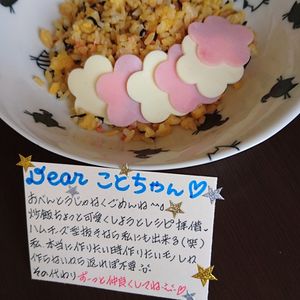 Dear ことちゃん♡
おべんとうじゃなくごめんね^^;
炒飯ちょっと可愛くしようとレシピ拝借。
ハムチーズ型抜きなら私にも出来る(笑)
私、本当に作りたい時作りたいモノしか
作らないから返れぽ不要
その代わりずーっと仲良くしてね